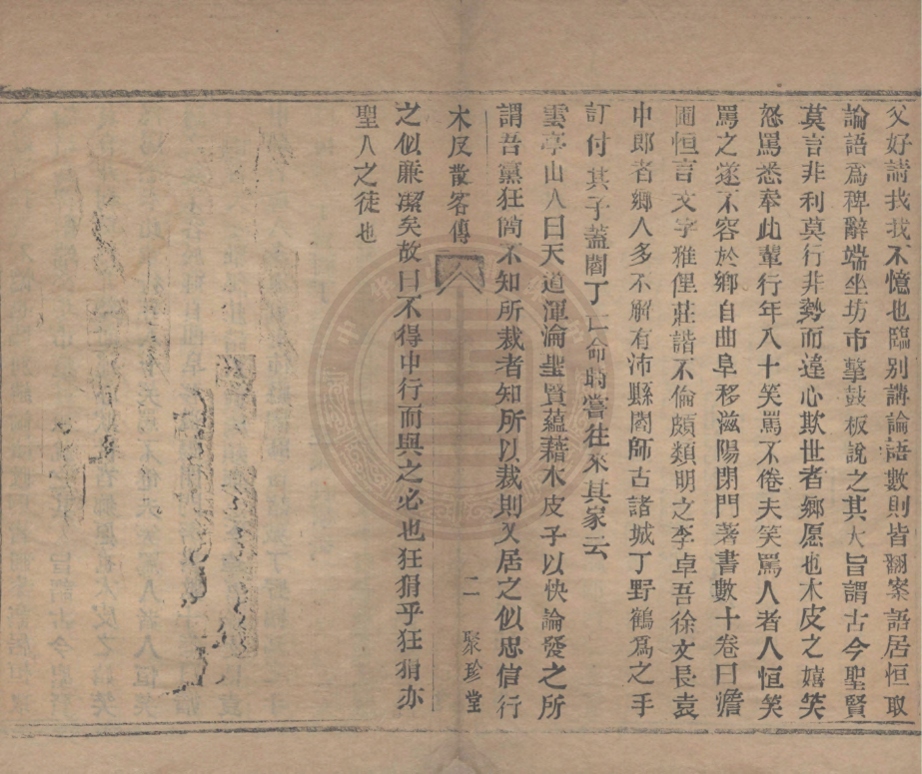 父好請我我不憶也臨別講論語數則皆翻案語居恒取
論語爲稗辭端坐坊市擊鼓板說之其大旨謂古今聖賢
莫言非利莫行非勢而違心欺世者鄉愿也木皮之嬉笑
怒罵悉奉此輩行年八十笑罵不倦夫笑罵人者人恒笑
罵之遂不容於鄉自曲阜移滋陽閉門著書數十卷曰澹
圃恒言文字雅俚莊諧不倫頗類明之李卓吾徐文長袁
中郎者鄉人多不解有沛縣閻師古諸城丁野鶴爲之手
訂付其子蓋閻丁亡命時嘗往來其家云
雲亭山人曰天道渾淪聖賢蘊藉木皮子以快論發之所
謂吾黨狂簡不知所裁者知所以裁則又居之似忠信行
木皮散客傳 二 聚珍堂
之似廉潔矣故曰不得中行而與之必也狂狷乎狂狷亦
聖人之徒也